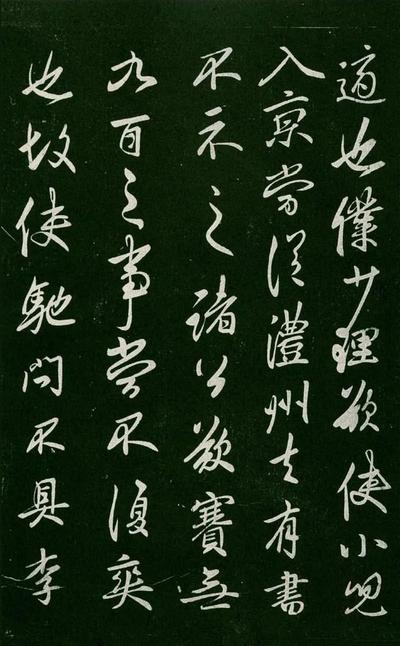 適也僕少理欲使小兒
入京當從澧州去有書
不示之諸公欲賽無
九百之事當不復爽
也故使馳問不具李